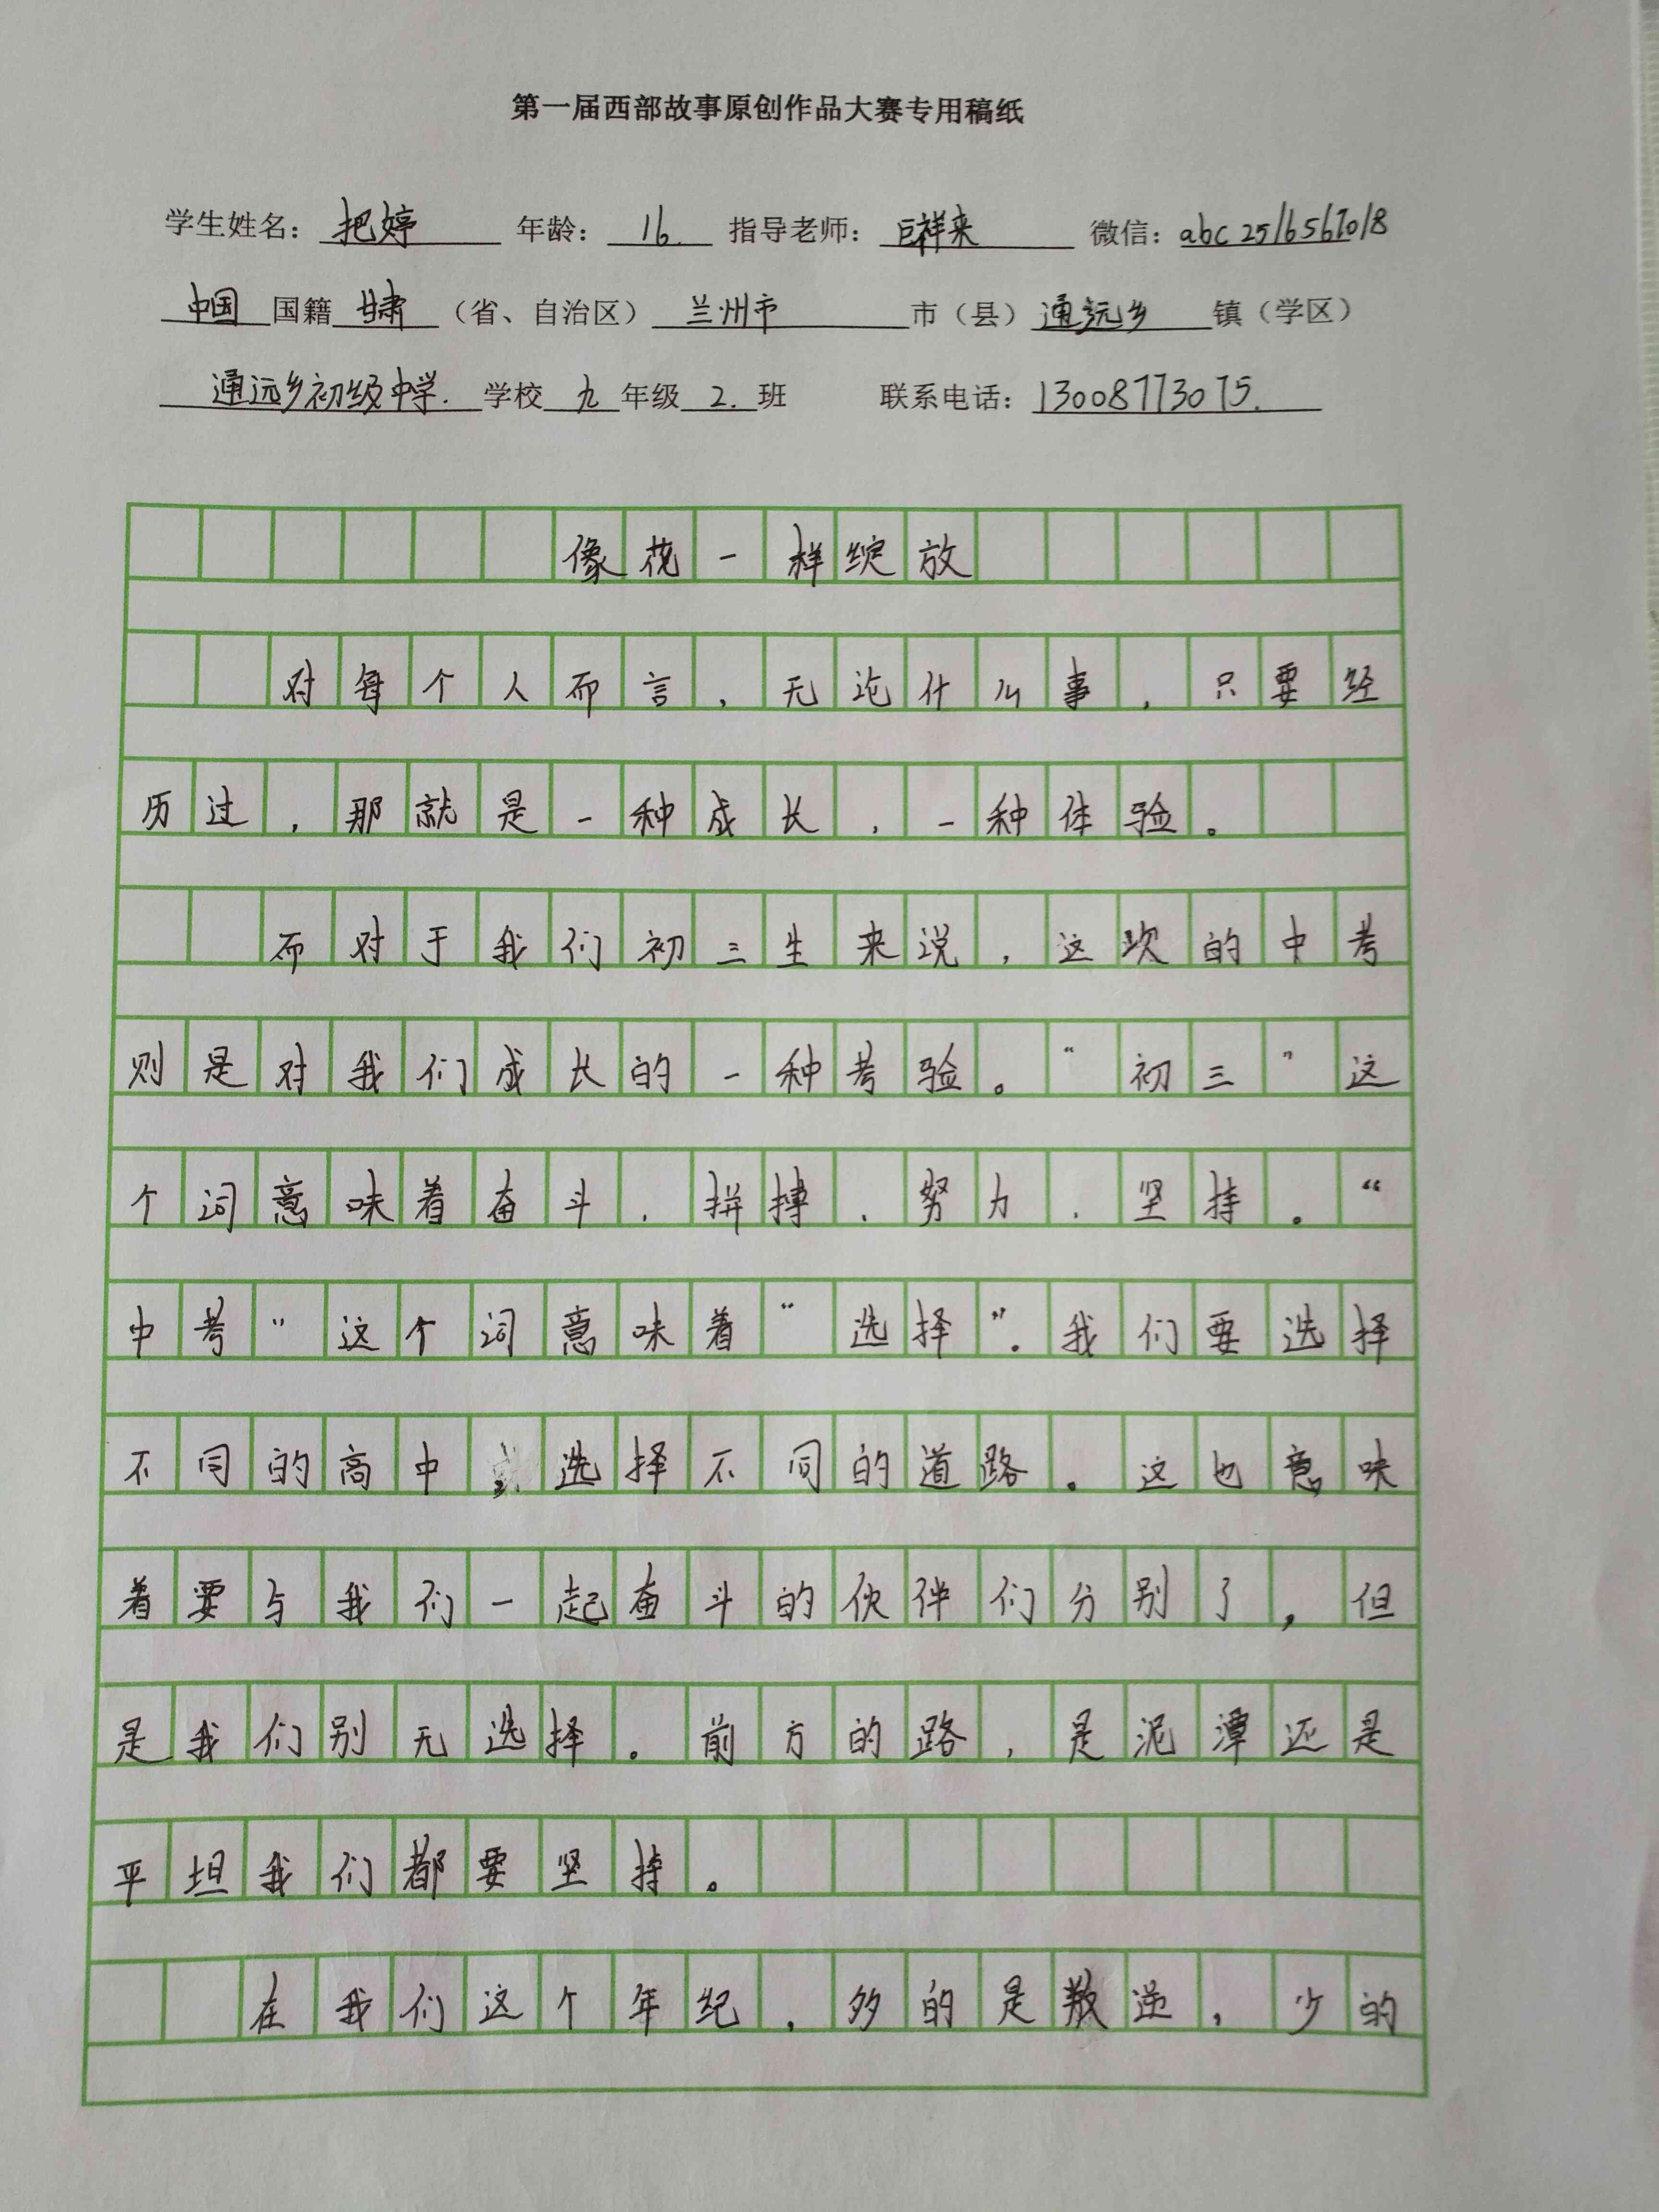 第一届西部故事原创作品大赛专用稿纸
学生姓名：把婷 年龄：16. 指导老师：巨祥来 微信：abc2516567018
中国国籍甘肃（省、自治区）兰州市市（县）通远乡镇（学区）
通远乡初级中学.学校九年级2.班 联系电话：13008773075.
像花一样绽放
对每个人而言，无论什么事，只要经
历过，那就是一种成长，一种体验。
而对于我们初三生来说，这次的中考
则是对我们成长的一种考验。“初三”这
个词意味着奋斗、拼搏、努力、坚持。“
中考”这个词意味着“选择”。我们要选择
不同的高中 选择不同的道路。这也意味
着要与我们一起奋斗的伙伴们分别了，但
是我们别无选择。前方的路，是泥潭还是
平坦我们都要坚持。
在我们这个年纪，多的是叛逆，少的